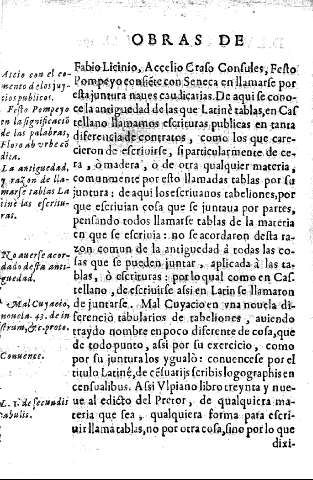 OBRAS DE
Fabio Licinio, Accelio Craso Consules, Festo
Pompeyo consiẽte con Seneca en llamarse por
esta juntura naues caudicarias. De aqui se cono-
ce la antiguedad de las que Latinẽ tablas, en Cas
tellano llamamos escrituras publicas en tanta
diferencia de contratos, como los que care-
cieron de escriuirse, si particularmente de ce-
ra, ò madera, ò de otra qualquier materia,
comunmente por esto llamadas tablas por su
juntura: de aqui los escriuanos tabeliones, por
que escriuian cosa que se juntaua por partes,
pensando todos llamarse tablas de la materia
en que se escriuia: no se acordaron desta ra-
zon comun de la antiguedad à todas las co-
sas que se pueden juntar, aplicada à las ta-
blas, ò escrituras: por lo qual como en Cas-
tellano, de escriuirse assi en Latin se llamaron
de juntarse. Mal Cuyacio en vna nouela di-
ferenciò tabularios de tabeliones, auiendo
traydo nombre en poco diferente de cosa, que
de todo punto, assi por su exercicio, como
por su juntura los ygualò: conuencese por el
titulo Latinẽ, de cẽsuarijs scribis logographis en
censualibus. Assi Vlpiano libro treynta y nue-
ue al edicto del Pretor, de qualquiera ma-
teria que sea, qualquiera forma para escri-
uir llama tablas, no por otra cosa, sino por lo que
dixi-
Accio con el co-
mento de los juy-
zios publicos.
Festo Pompeyo
en la significaciõ
de las palabras,
Floro ab vrbe cõ
dita.
La antiguedad,
y razon de lla-
marse tablas La
tinẽ las escritu-
ras.
No auerse acor-
dado desta anti-
guedad.
Mal Cuyacio,
nouela. 43. de in
strum, & c. proto.
Conuence.
L. 1. de secundis
tabulis.